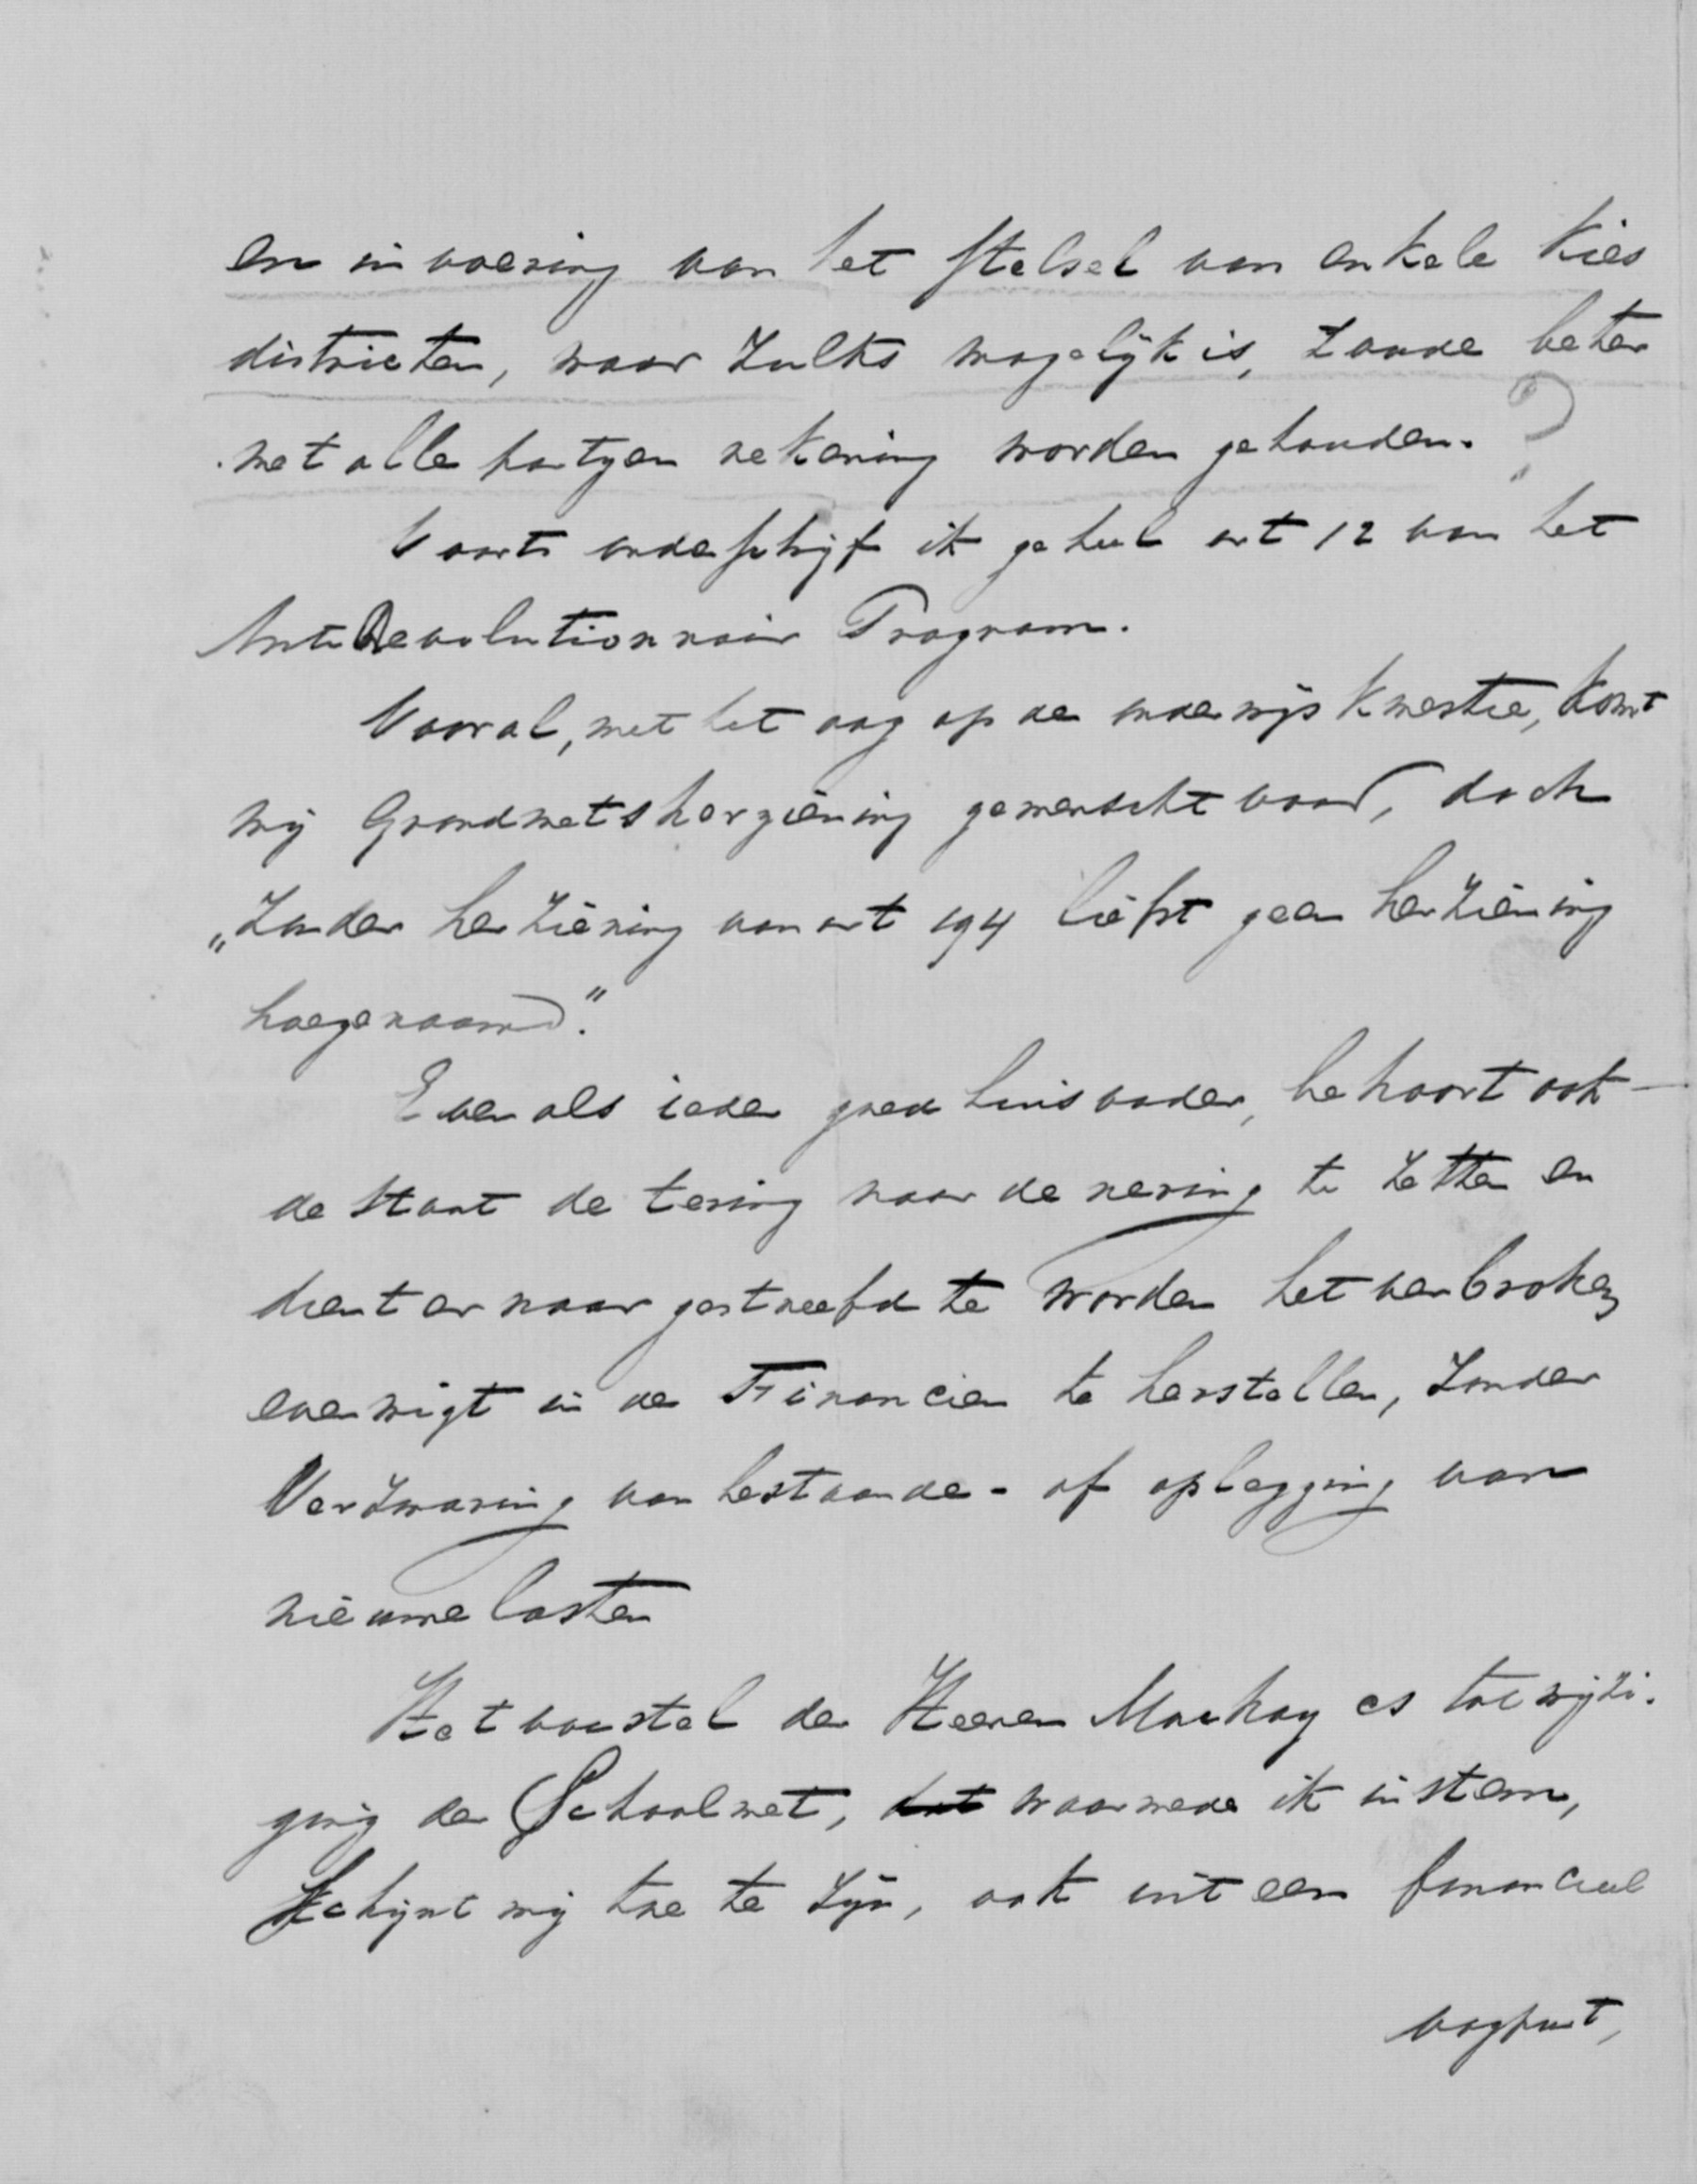 en invoering van het stelsel van enkele Kies
districten, waar zulks mogelijk is, zoude beter
met alle partyen rekening worden gehouden. ?
Voorts onderschrijf ik geheel art 12 van het
AntiRevolutionnair Program.
Vooral, met het oog op de onderwijs kwestie, komt
mij Grondwetsherziening gewenscht voor, doch
„Zonder herziening van art 194 liefst geen herziening
hoegenaamd."
Even als ieder goed huisvader, behoort ook
de Staat de tering naar de nering te zetten en
dient er naar gestreefd te worden het verbroken
evenwigt in de Financien te herstellen, zonder
Verzwaring van bestaande - of oplegging van
nieuwe lasten
Het voorstel der Heeren Mackay cs tot wijzi-
ging der Schoolwet, dat waarmede ik instem,
Schijnt mij toe te zijn, ook uit een financieel
oogpunt,